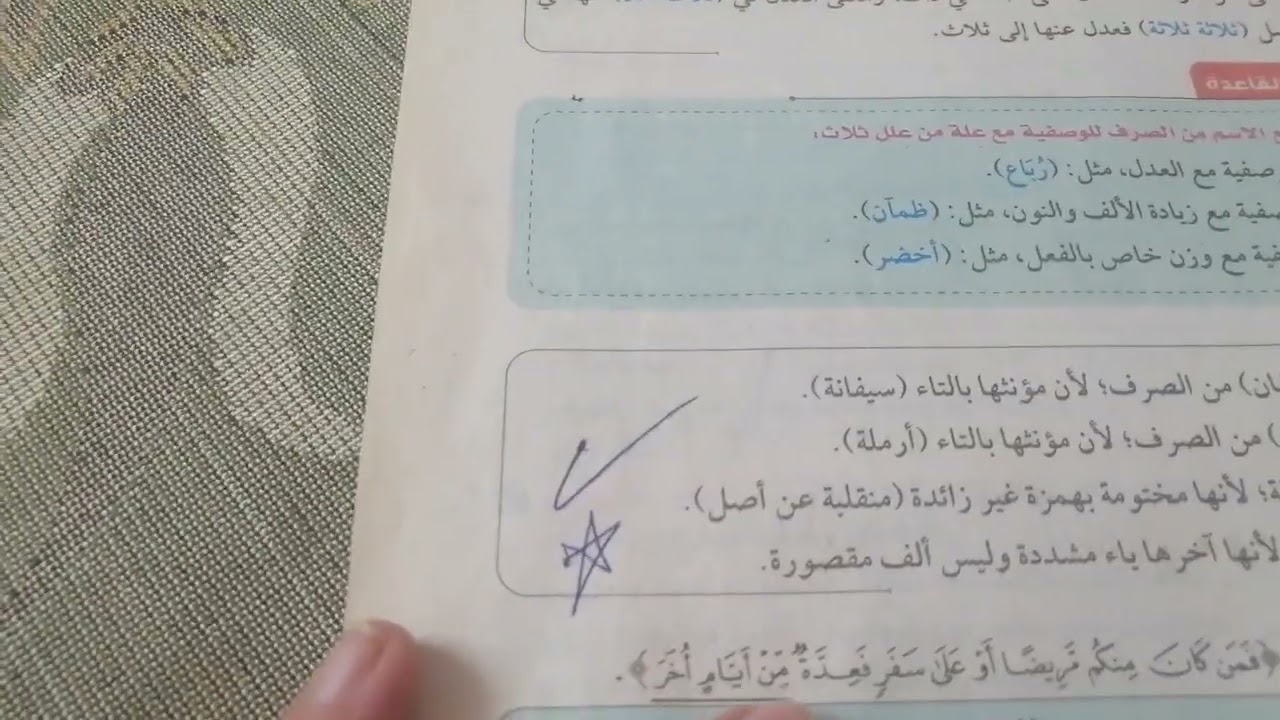 (ثلاثة ثلاثة) فعدل عنها إلى ثلاث.
القاعدة
الاسم من الصرف للوصفية مع علة من علل ثلاث:
صفية مع العدل، مثل: (رُبَاع).
صفية مع زيادة الألف والنون، مثل: (ظمآن).
فية مع وزن خاص بالفعل، مثل: (أخضر).
ان) من الصرف؛ لأن مؤنثها بالتاء (سيفانة).
) من الصرف؛ لأن مؤنثها بالتاء (أرملة).
ة؛ لأنها مختومة بهمزة غير زائدة (منقلبة عن أصل).
لأنها آخرها ياء مشددة وليس ألف مقصورة.
﴿فَمَن كَانَ مِنكُم مَّرِيضًا أَوْ عَلَىٰ سَفَرٍ فَعِدَّةٌ مِّنْ أَيَّامٍ أُخَرَ﴾.